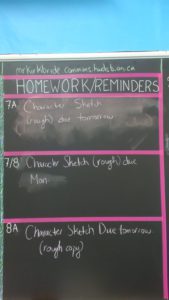 mrkirkbride.commons.hwdsb.on.ca
HOMEWORK/REMINDERS
7A Character Sketch
(rough) due tomorrow
7/8 Character Sketch (rough) due
Mon.
8A Character Sketch Due tomorrow.
(rough copy)